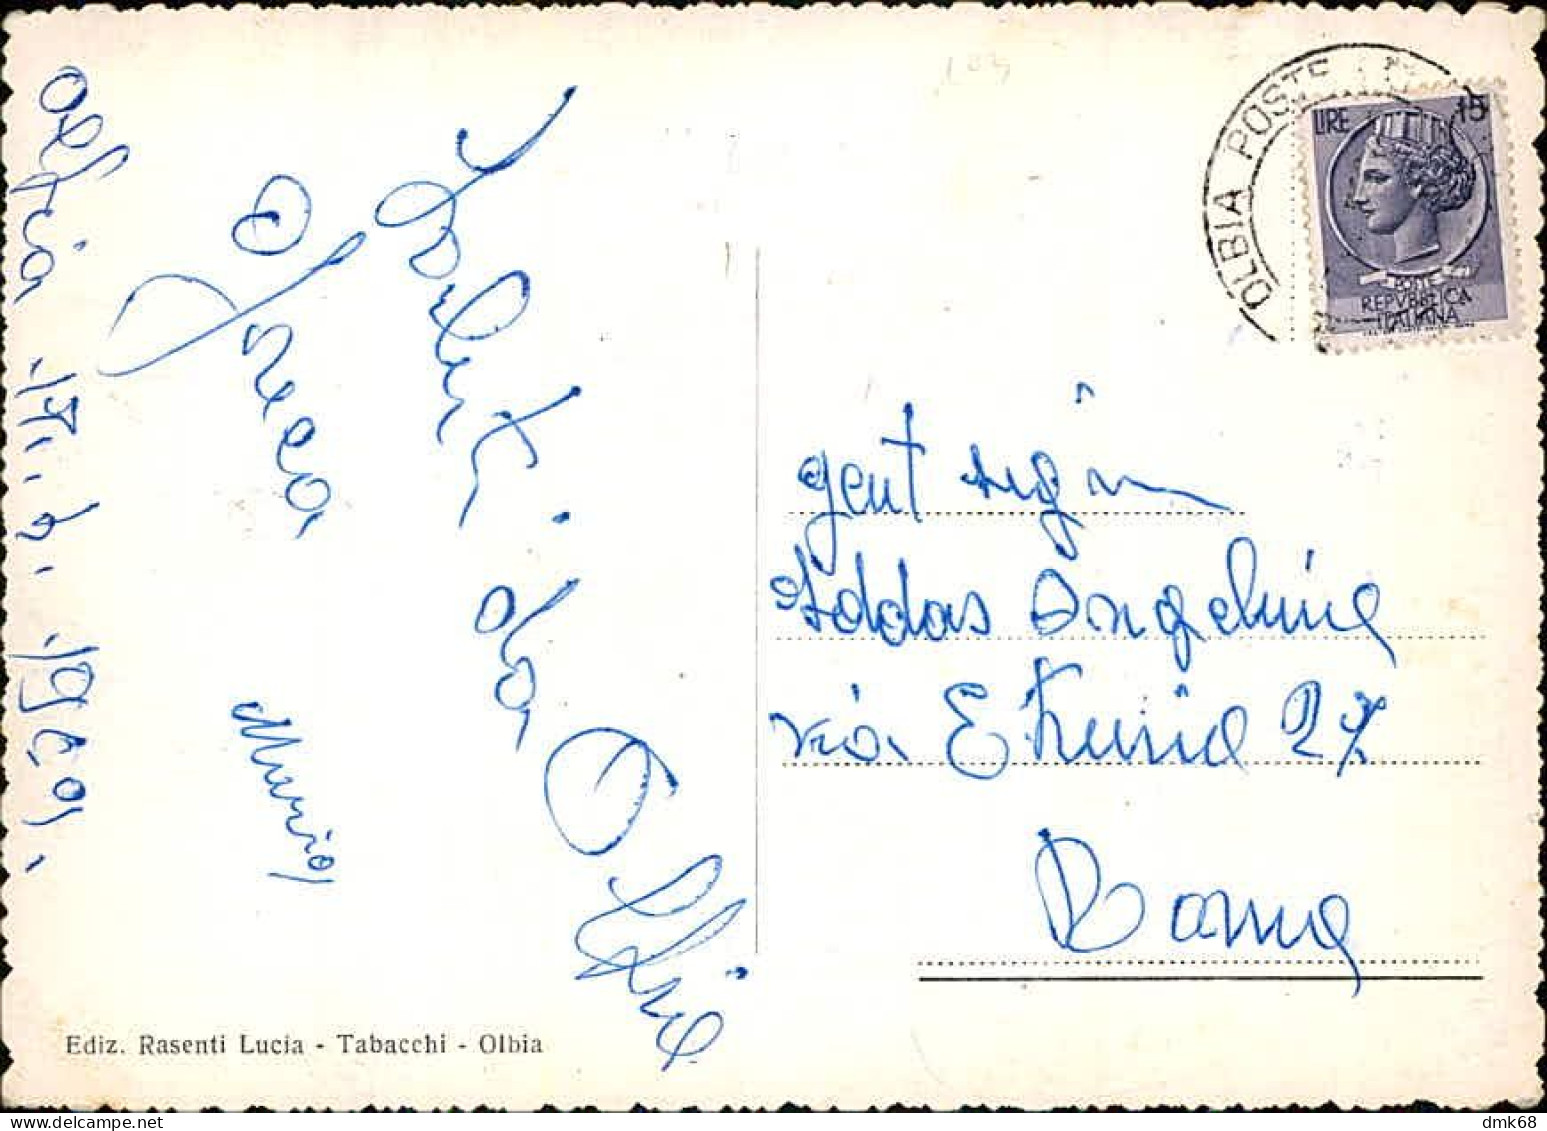 OLBIA POSTE
LIRE 15
POSTE
REPVBBLICA
ITALIANA
Olbia - 17. 7. 1969.
Saluti da Olbia
Mario
gent sig na
Addas Angelina
via Etruria 27
Roma
Ediz. Rasenti Lucia - Tabacchi - Olbia
dmk68